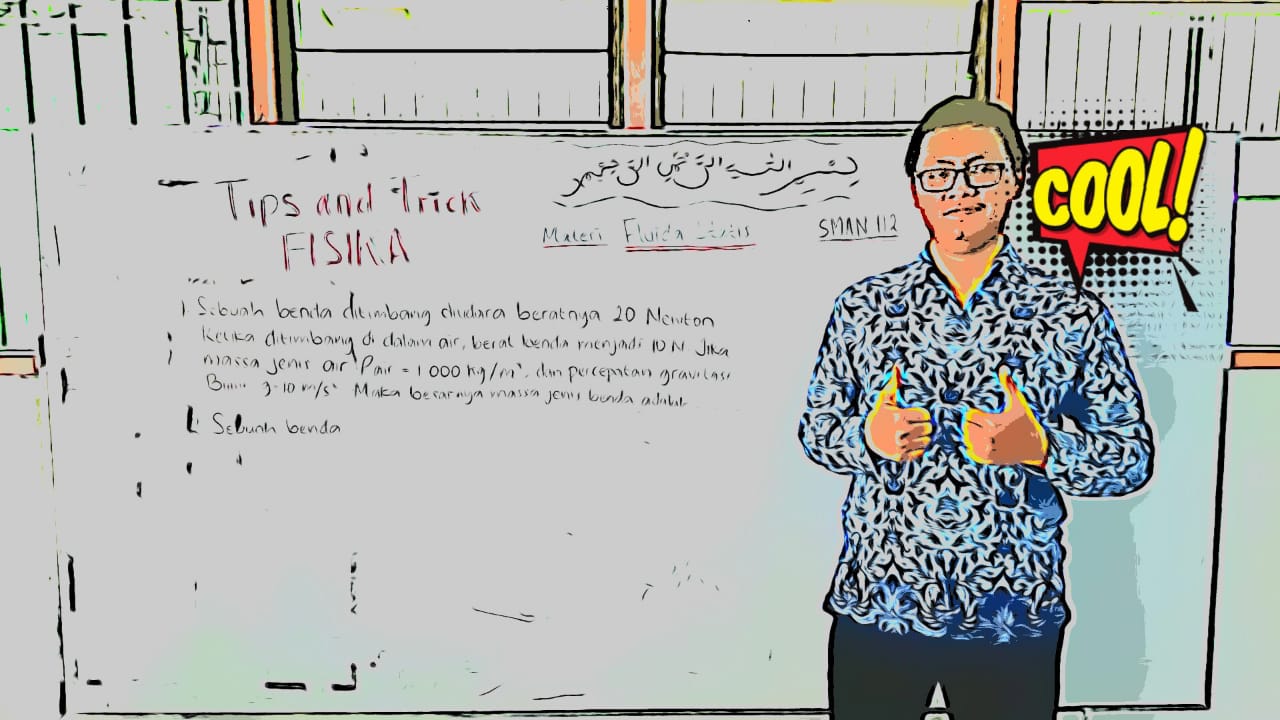 بسم الله الرحمن الرحيم
Tips and Trick
FISIKA
Materi Fluida Statis
SMAN 112
1 Sebuah benda ditimbang diudara beratnya 20 Newton
Ketika ditimbang di dalam air, berat benda menjadi 10 N. Jika
massa jenis air ρair = 1000 kg/m³, dan percepatan gravitasi
Bumi g=10 m/s² Maka besarnya massa jenis benda adalah
Sebuah benda
COOL!